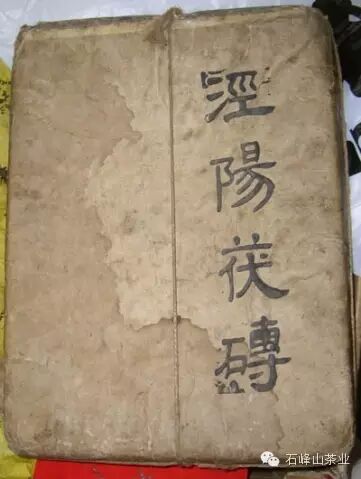 涇陽茯磚
石峰山茶业